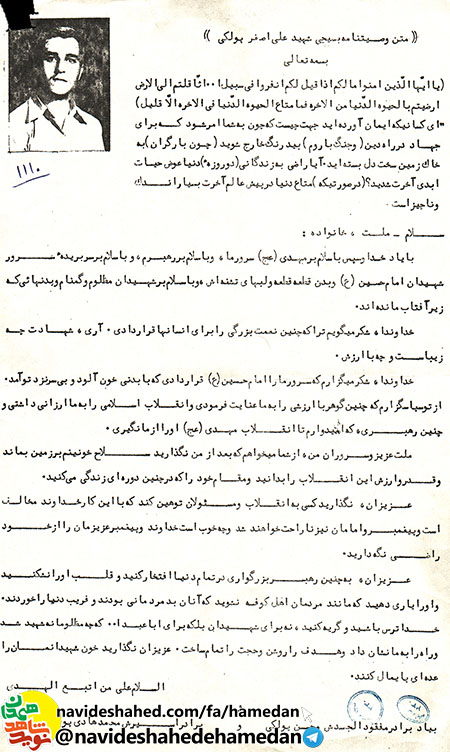 (( متن وصیتنامه بسیجی شهید علی اصغر پولکی ))
بسمه تعالی
(یا ایها الّذین امنوا ما لکم اذا قیل لکم انفروا فی سبیل ا... اثّا قلتم الی الارض
ارضیتم با لحیوه الدّنیا من الاخره فما متاع الحیوه الدّنیا فی الاخره الا قلیل)
"ای کسانیکه ایمان آورده اید جهت چیست که چون به شما امر شود که برای
جهاد در راه دین (وجنگ با روم) بیدرنگ خارج شوید (چون بارگران) به
خاک زمین سخت دل بسته اید . آیا راضی به زندگانی (دوروزه) دنیا عوض حیات
ابدی آخرت شدید؟ (در صورتیکه) متاع دنیا در پیش عالم آخرت بسیار اندک
ونا چیز است
۱۱۱۰
سلام - ملت ، خانواده :
با یاد خدا وسپس با سلام بر مهدی (عج) سرورما ، وبا سلام بر رهبرم ، و با سلام بر سر بریده سرور
شهیدان امام حسین (ع) وبدن قطعه قطعه ولبهای تشنه اش ، وبا سلام بر شهیدان مظلوم وگمنام وبدنهائی که
زیر آفتاب مانده اند .
خداوندا ، شکر میگویم ترا که چنین نعمت بزرگی را برای انسانها قرار دادی . آری ، شهادت چه
زیباست و چه با ارزش .
خداوندا ، شکر میگزارم که سرورما را امام حسین (ع) قرار دادی که با بدنی خون آلود و بی سر نزد تو آمد .
از تو سپاسگزارم که چنین گوهر با ارزشی را به ما عنایت فرمودی وانقلاب اسلامی را به ما ارزانی داشتی و
چنین رهبری ، که امیدوارم تا انقلاب مهدی (عج) او را از ما نگیری .
ملت عزیز وسروران من ، از شما میخواهم که بعد از من نگذارید سلاح خونینم بر زمین بماند
وقدر وارزش این انقلاب را بدانید ومقام خود را که در چنین دوره ای زندگی می کنید .
عزیزان ، نگذارید کسی به انقلاب ومسئولان توهین کند که با این کار خداوند مخالف
است وپیغمبر واما مان نیز ناراحت خواهند شد وچه خوب است خداوند وپیغمبر عزیزمان را از خود
راضی نگه دارید .
عزیزان ، به چنین رهبر بزرگواری در تمام دنیا افتخار کنید و قلب او را نشکنید
واو را یاری دهید که مانند مردمان اهل کوفه نشوید که آنان بد مردمانی بودند و فریب دنیا را خوردند .
خدا ترس باشید و گریه کنید ، نه برای شهیدان بلکه برای ابا عبدا... که چه مظلومانه شهید شد
وراه را به ما نشان داد وهدف را روشن وحجت را تمام ساخت . عزیزان نگذارید خون شهیدانمان را
عده ای پایمال کنند .
السلام علی من اتبع الهدی
بیاد برادر مفقود الجسدش محسن پولکی و برادر اسیرش محمد هادی
navideshahed.com/fa/hamedan
@navideshahedehamedan
نوید شاهد همدان